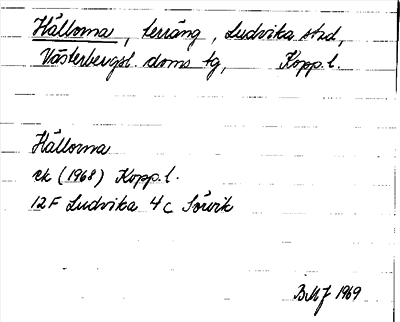 Hållorna, terräng, Ludvika stad,
Västerbergsl. doms tg, Kopp. l.
Hållorna
ek (1968) Kopp. l.
12F Ludvika 4c Sörvik
BMJ 1969